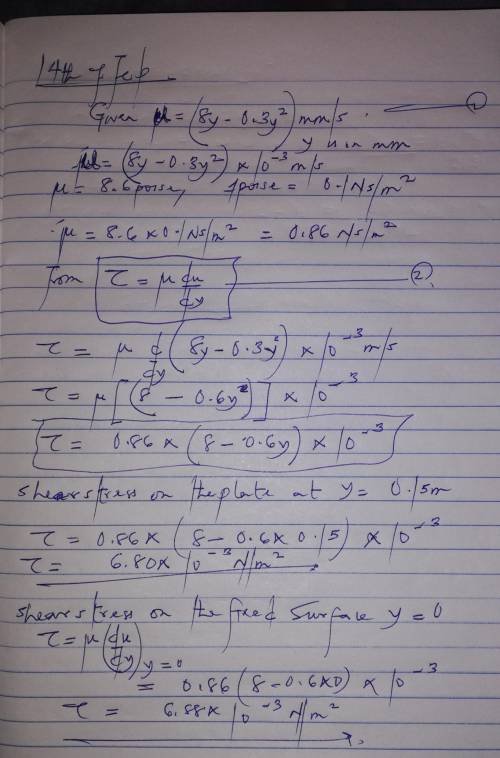 14th of Feb
Given u = (8y - 0.3y²) mm/s. ①
y is in mm
u = (8y - 0.3y²) × 10⁻³ m/s
μ = 8.6 poise, 1 poise = 0.1 Ns/m²
∴ μ = 8.6 × 0.1 Ns/m² = 0.86 Ns/m²
from τ = μ du/dy ②
τ = μ d/dy (8y - 0.3y²) × 10⁻³ m/s
τ = μ [(8 - 0.6y)] × 10⁻³
τ = 0.86 × (8 - 0.6y) × 10⁻³
Shear stress on the plate at y = 0.15m
τ = 0.86 × (8 - 0.6 × 0.15) × 10⁻³
τ = 6.80 × 10⁻³ N/m²
Shear stress on the fixed surface y = 0
τ = μ (du/dy) y=0
= 0.86 (8 - 0.6×0) × 10⁻³
τ = 6.88 × 10⁻³ N/m²